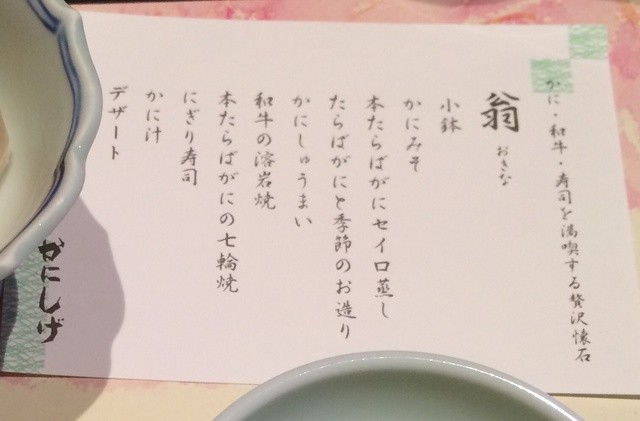 かに・和牛・寿司を満喫する贅沢懐石
翁 おきな
小鉢
かにみそ
本たらばがにセイロ蒸し
たらばがにと季節のお造り
かにしゅうまい
和牛の溶岩焼
本たらばがにの七輪焼
にぎり寿司
かに汁
デザート
かにしげ